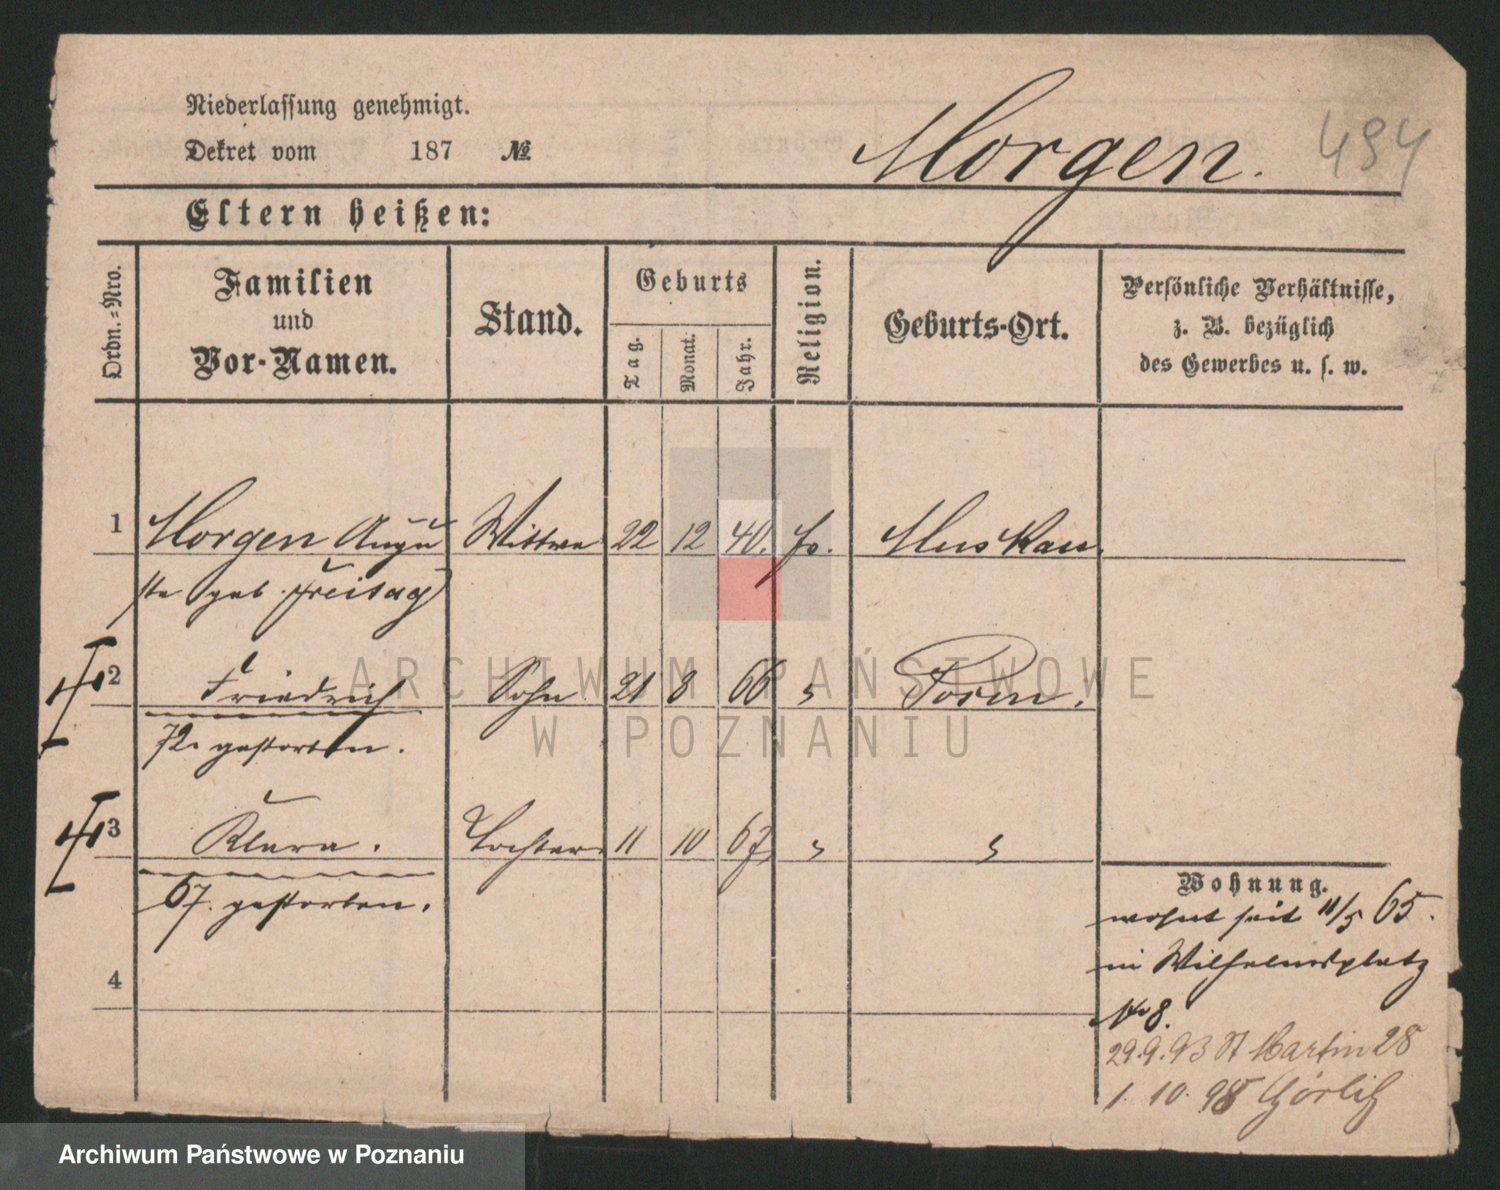 Niederlassung genehmigt.
Dekret vom 187 №
Morgen. 494
Eltern heißen:
Ordn.-Nro.
Familien und Vor-Namen.
Stand.
Geburts
Tag. Monat. Jahr.
Religion.
Geburts-Ort.
Persönliche Verhältnisse,
z. B. bezüglich
des Gewerbes u. s. w.
1 Morgen Augu Wittwe 22 12 40. Muskau.
ste geb. Freitag
2 Friedrich Sohn 21 8 66 " Posen.
72 gestorben.
3 Klara. Tochter 11 10 67 " "
67. gestorben.
4
Wohnung.
wohnt seit 11/5 65.
in Wilhelmsplatz
No 8.
29.9.93 St Martin 28
1. 10. 98 Görlitz
ARCHIWUM PAŃSTWOWE
W POZNANIU
Archiwum Państwowe w Poznaniu